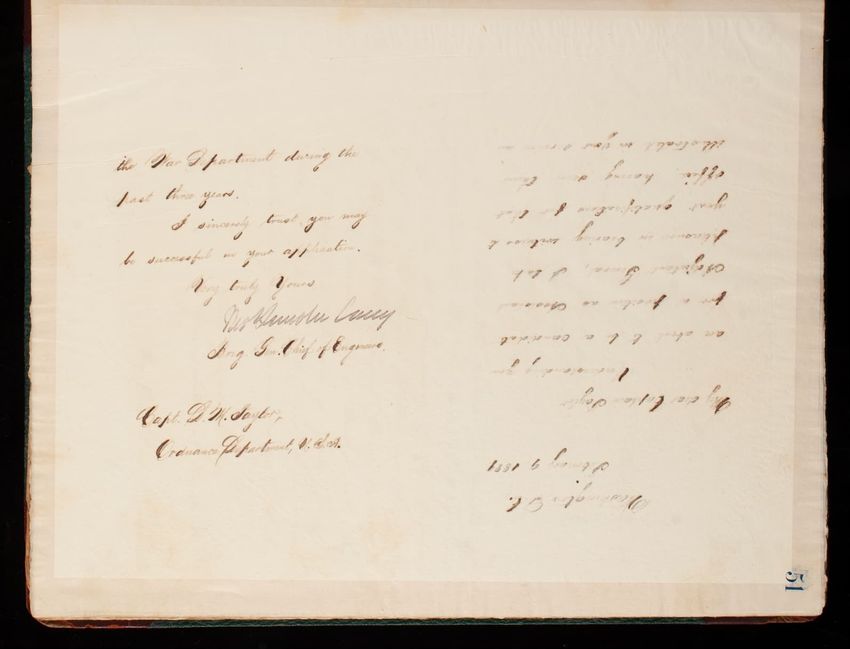 Washington D.C.
February 9 1889
My dear Captain Taylor
Understanding you
are about to be a candidate
for a position as Assistant
Adjutant General, I take
pleasure in bearing witness to
your qualifications for that
office having seen them
illustrated in your service in
the War Department during the
past three years.
I sincerely trust you may
be successful in your application.
Very truly Yours
Thos Lincoln Casey
Brig. Gen. Chief of Engineers.
Capt. D. M. Taylor,
Ordnance Department, U.S.A.
51